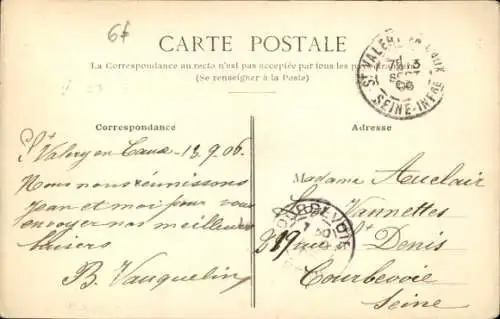 6f
CARTE POSTALE
La Correspondance au recto n'est pas acceptée par tous les pays étrangers
(Se renseigner à la Poste)
ST VALERY EN CAUX
7 3
SEPT
06
SEINE-INFRE
Correspondance
Adresse
St Valery en Caux 13.9.06.
Nous nous réunissons
Jean et moi pour vous
envoyer nos meilleurs
baisers
B. Vauquelin
Madame Auclair
Vannettes
19 rue St Denis
Courbevoie
Seine
COURBEVOIE